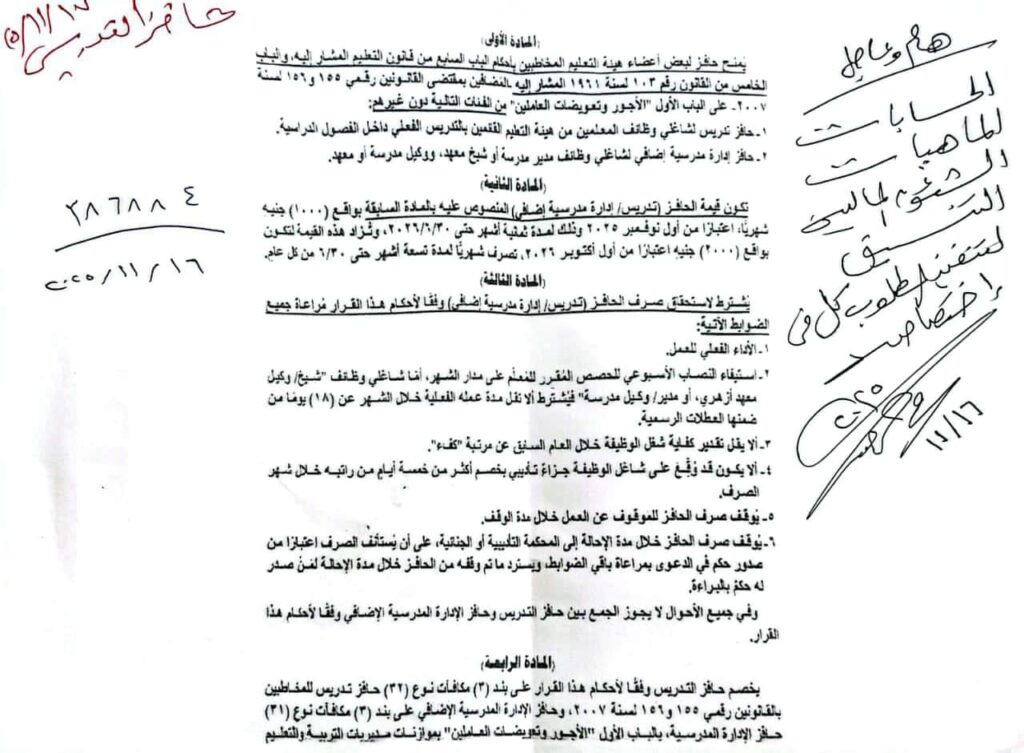 حافز التدريس
(المادة الأولى)
يُمنح حافز لبعض أعضاء هيئة التعليم المخاطبين بأحكام الباب السابع من قانون التعليم المشار إليه، والباب
الخامس من القانون رقم ١٠٣ لسنة ١٩٦١ المشار إليه المُضافين بمقتضى القانونين رقمي ١٥٥ و١٥٦ لسنة
٢٠٠٧ـ على الباب الأول "الأجور وتعويضات العاملين" من الفئات التالية دون غيرهم:
١ـ حافز تدريس لشاغلي وظائف المعلمين من هيئة التعليم القائمين بالتدريس الفعلي داخل الفصول الدراسية.
٢ـ حافز إدارة مدرسية إضافي لشاغلي وظائف مدير مدرسة أو شيخ معهد، ووكيل مدرسة أو معهد.
(المادة الثانية)
تكون قيمة الحافز (تدريس/ إدارة مدرسية إضافي) المنصوص عليه بالمادة السابقة بواقع (١٠٠٠) جنيه
شهريًا، اعتبارًا من أول نوفمبر ٢٠٢٥ وذلك لمدة ثمانية أشهر حتى ٢٠٢٦/٦/٣٠، وتُزاد هذه القيمة لتكون
بواقع (٢٠٠٠) جنيه اعتبارًا من أول أكتوبر ٢٠٢٦، تصرف شهريًا لمدة تسعة أشهر حتى ٦/٣٠ من كل عام.
(المادة الثالثة)
يُشترط لاستحقاق صرف الحافز (تدريس/ إدارة مدرسية إضافي) وفقًا لأحكام هذا القرار مُراعاة جميع
الضوابط الآتية:
١ـ الأداء الفعلي للعمل.
٢ـ استيفاء النصاب الأسبوعي للحصص المُقرر للمُعلم على مدار الشهر، أما شاغلي وظائف "شيخ/ وكيل
معهد أزهري، أو مدير/ وكيل مدرسة" فيُشترط ألا تقل مدة عمله الفعلية خلال الشهر عن (١٨) يومًا من
ضمنها العطلات الرسمية.
٣ـ ألا يقل تقدير كفاية شغل الوظيفة خلال العام السابق عن مرتبة "كفء".
٤ـ ألا يكون قد وُقِّعَ على شاغل الوظيفة جزاءً تأديبي بخصم أكثر من خمسة أيام من راتبه خلال شهر
الصرف.
٥ـ يُوقف صرف الحافز للموقوف عن العمل خلال مدة الوقف.
٦ـ يُوقف صرف الحافز خلال مدة الإحالة إلى المحكمة التأديبية أو الجنائية، على أن يُستأنف الصرف اعتبارًا من
صدور حكم في الدعوى بمراعاة باقي الضوابط، ويسترد ما تم وقفه من الحافز خلال مدة الإحالة لمَنْ صدر
له حكمٌ بالبراءة.
وفي جميع الأحوال لا يجوز الجمع بين حافز التدريس وحافز الإدارة المدرسية الإضافي وفقًا لأحكام هذا
القرار.
(المادة الرابعة)
يخصم حافز التدريس وفقًا لأحكام هذا القرار على بند (٣) مكافآت نوع (٣٢) حافز تدريس للمخاطبين
بالقانونين رقمي ١٥٥ و١٥٦ لسنة ٢٠٠٧، وحافز الإدارة المدرسية الإضافي على بند (٣) مكافآت نوع (٣١)
حافز الإدارة المدرسية، بالباب الأول "الأجور وتعويضات العاملين" بموازنات مديريات التربية والتعليم
٣٨٦٨٨٤
٢٠٢٥/١١/١٦
هام وعاجل
الحسابات
الماهيات
الشئون المالية
التنسيق
لتنفيذ المطلوب كل فى
إختصاصه
٢٠٢٥
١١/١٦